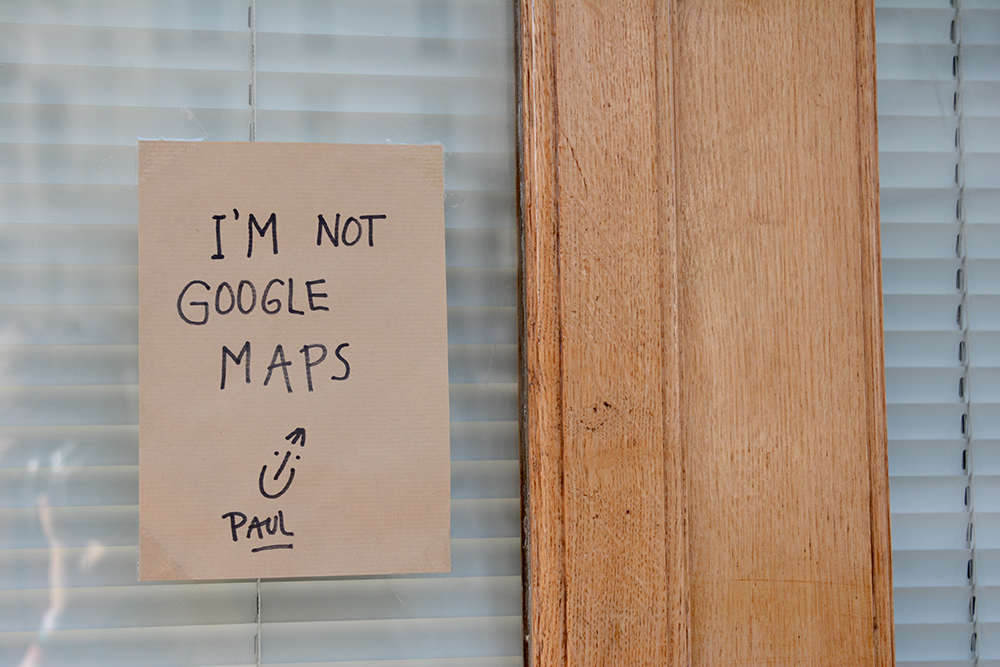 I'M NOT
GOOGLE
MAPS
PAUL